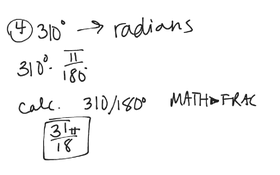 ④ 310° → radians
310° · π/180°
calc. 310/180° MATH▶FRAC
31π/18